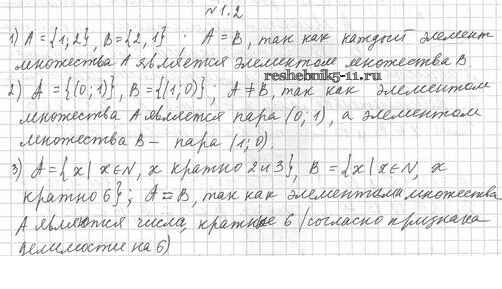 №1.2
1) A = {1; 2}, B = {2, 1} ; A = B, так как каждый элемент
множества A является элементом множества B
reshebnik5-11.ru
2) A = {(0; 1)}, B = {(1; 0)}; A ≠ B, так как элементом
множества A является пара (0; 1), а элементом
множества B – пара (1; 0).
3) A = {x | x ∈ N, x кратно 2 и 3}, B = {x | x ∈ N, x
кратно 6}; A = B, так как элементами множества
A являются числа, кратные 6 (согласно признака
делимости на 6)